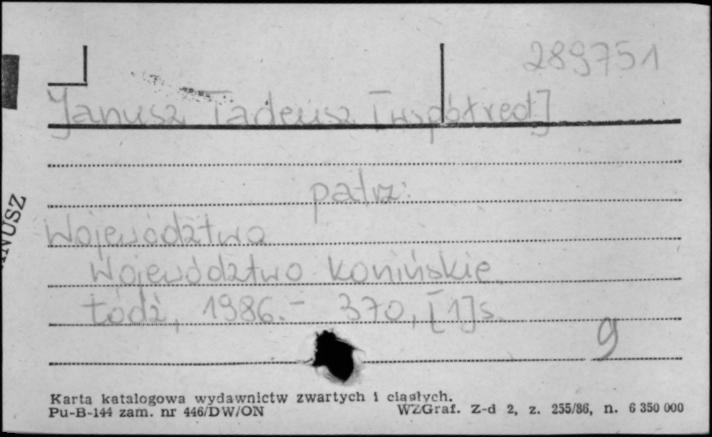 289751
Janusz Tadeusz [współred]
patrz:
Województwo
Województwo konińskie
Łódź, 1986.- 370, [1]s.
9
NUSZ
Karta katalogowa wydawnictw zwartych i ciągłych.
Pu-B-144 zam. nr 446/DW/ON WZGraf. Z-d 2, z. 255/86, n. 6 350 000